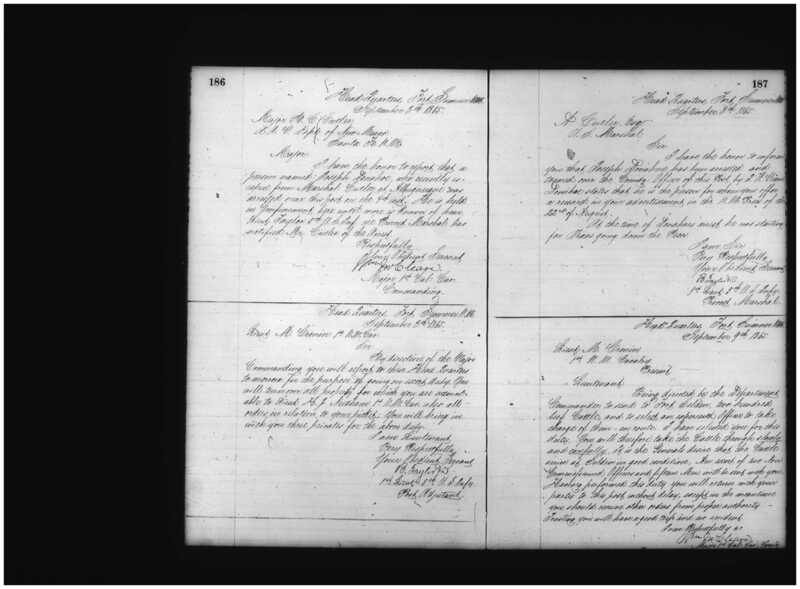 186
Head Quarters, Fort Sumner N.M.
September 5th 1865.
Major
Santa Fe N.M.
Major
I have the honor to report that a
person named Joseph Donahoe, who recently
from Marshal Cutler at Albuquerque was
arrested near this post on the 3rd inst. He is held
in confinement here until more is known of him.
Lieut. Taylor 5th U.S. Inf. Provost Marshal has
notified Mr. Cutler of the arrest.
Respectfully
Your Obedient Servant
McCleave
Major 1st Cal. Cav.
Commanding
Head Quarters Fort Sumner N.M.
September 5th 1865.
Lieut. M. Cronin 1st N.M. Cav.
Sir
By direction of the Major
Commanding you will report to these Head Quarters
to morrow for the purpose of going on escort duty. You
will turn over all property for which you are account-
able to Lieut. 1st N.M. Cav. also all
orders in relation to your picket. You will bring in
with you three privates for the above duty.
I am Lieutenant
Very Respectfully
Your Obedient Servant
1st Lieut. 5th U.S. Infy
Post Adjutant
187
Head Quarters, Fort Sumner N.M.
September 1865.
A Cutler Esq
U.S. Marshal
Sir
I have the honor to inform
you that Joseph Donahoe has been arrested and
states that he is the person for whom you offer
a reward in your advertisement in the N.M. Press of the
22nd of August.
At the time of Donahoes arrest he was starting
for Texas going down the Pecos.
I am Sir
Very Respectfully
Your Obedient Servant
1st Lieut 5th U.S. Infy.
Provost Marshal.
Head Quarters Fort Sumner N.M.
September 9th 1865
Lieut. M. Cronin
1st N.M. Cavalry
Present
Lieutenant
Being directed by the Department
Commander to send to Fort Selden, two hundred
Beef Cattle, and to select an Officer to take
charge of them en route. I have selected you for this
duty. You will therefore take the Cattle through slowly
and carefully. It is the Generals desire that the Cattle
arrive at Selden in good condition. An escort of two Non
Commissioned Officers and fifteen Men will be sent with you
Having performed this duty you will return with your
party to this post without delay, except in the meantime
you should receive other orders from proper authority.
Trusting you will have a good trip and no accident
I am Respectfully
McCleave
Major 1st Cal. Cav.